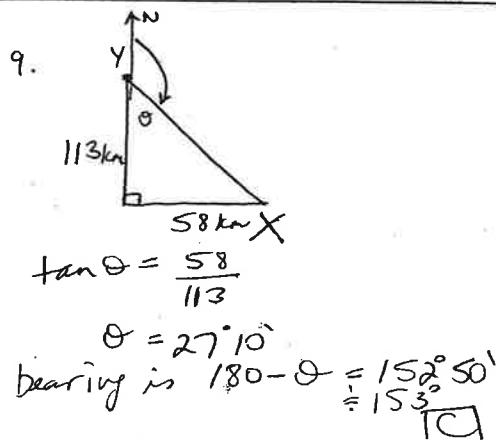 N
9.
Y
θ
113km
58km X
tan θ = 58/113
θ = 27°10'
bearing is 180-θ = 152°50'
≑ 153°
C